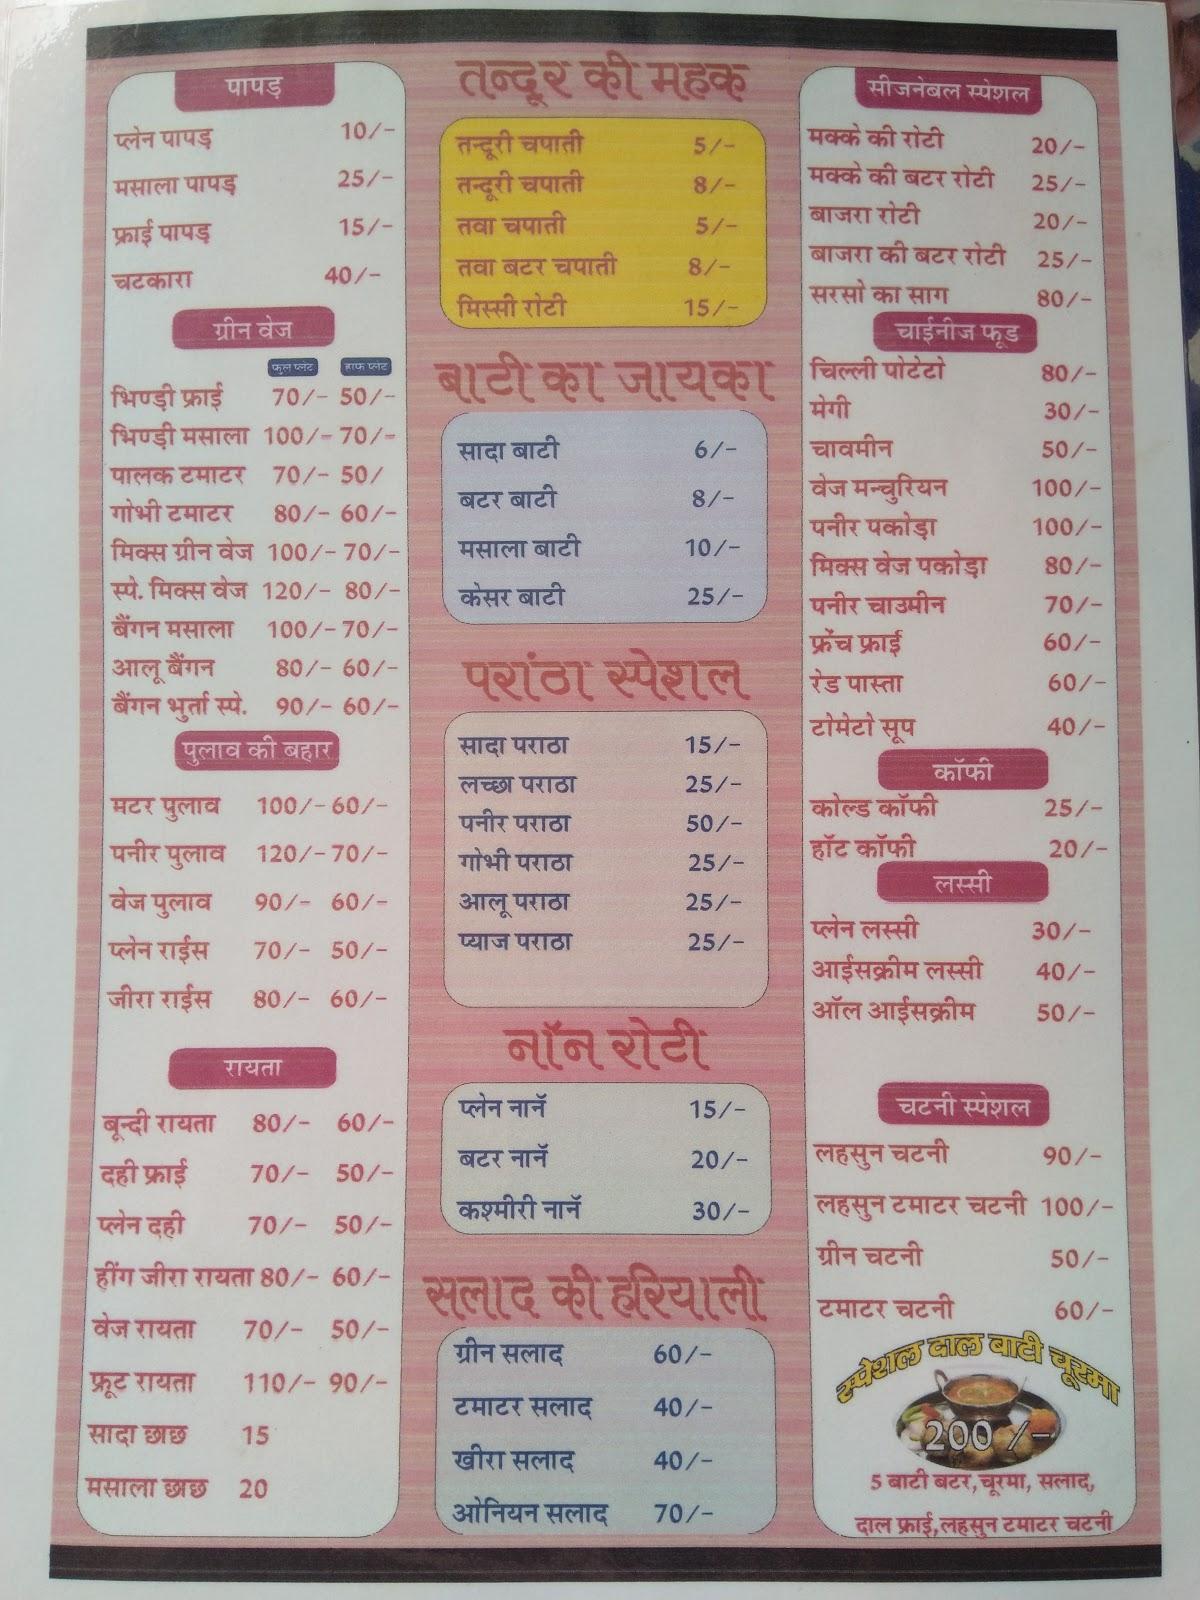 पापड़
प्लेन पापड़ 10/-
मसाला पापड़ 25/-
फ्राई पापड़ 15/-
चटकारा 40/-
ग्रीन वेज
फुल प्लेट हाफ प्लेट
भिण्ड़ी फ्राई 70/- 50/-
भिण्ड़ी मसाला 100/- 70/-
पालक टमाटर 70/- 50/
गोभी टमाटर 80/- 60/-
मिक्स ग्रीन वेज 100/- 70/-
स्पे. मिक्स वेज 120/- 80/-
बैंगन मसाला 100/- 70/-
आलू बैंगन 80/- 60/-
बैंगन भुर्ता स्पे. 90/- 60/-
पुलाव की बहार
मटर पुलाव 100/- 60/-
पनीर पुलाव 120/- 70/-
वेज पुलाव 90/- 60/-
प्लेन राईस 70/- 50/-
जीरा राईस 80/- 60/-
रायता
बून्दी रायता 80/- 60/-
दही फ्राई 70/- 50/-
प्लेन दही 70/- 50/-
हींग जीरा रायता 80/- 60/-
वेज रायता 70/- 50/-
फ्रूट रायता 110/- 90/-
सादा छाछ 15
मसाला छाछ 20
तन्दूर की महक
तन्दूरी चपाती 5/-
तन्दूरी चपाती 8/-
तवा चपाती 5/-
तवा बटर चपाती 8/-
मिस्सी रोटी 15/-
बाटी का जायका
सादा बाटी 6/-
बटर बाटी 8/-
मसाला बाटी 10/-
केसर बाटी 25/-
परांठा स्पेशल
सादा पराठा 15/-
लच्छा पराठा 25/-
पनीर पराठा 50/-
गोभी पराठा 25/-
आलू पराठा 25/-
प्याज पराठा 25/-
नॉन रोटी
प्लेन नानॅ 15/-
बटर नानॅ 20/-
कश्मीरी नानॅ 30/-
सलाद की हरियाली
ग्रीन सलाद 60/-
टमाटर सलाद 40/-
खीरा सलाद 40/-
ओनियन सलाद 70/-
सीजनेबल स्पेशल
मक्के की रोटी 20/-
मक्के की बटर रोटी 25/-
बाजरा रोटी 20/-
बाजरा की बटर रोटी 25/-
सरसो का साग 80/-
चाईनीज फूड
चिल्ली पोटेटो 80/-
मेगी 30/-
चावमीन 50/-
वेज मन्चुरियन 100/-
पनीर पकोड़ा 100/-
मिक्स वेज पकोड़ा 80/-
पनीर चाउमीन 70/-
फ्रेंच फ्राई 60/-
रेड पास्ता 60/-
टोमेटो सूप 40/-
कॉफी
कोल्ड कॉफी 25/-
हॉट कॉफी 20/-
लस्सी
प्लेन लस्सी 30/-
आईसक्रीम लस्सी 40/-
ऑल आईसक्रीम 50/-
चटनी स्पेशल
लहसुन चटनी 90/-
लहसुन टमाटर चटनी 100/-
ग्रीन चटनी 50/-
टमाटर चटनी 60/-
स्पेशल दाल बाटी चूरमा
200 /-
5 बाटी बटर,चूरमा, सलाद,
दाल फ्राई,लहसुन टमाटर चटनी